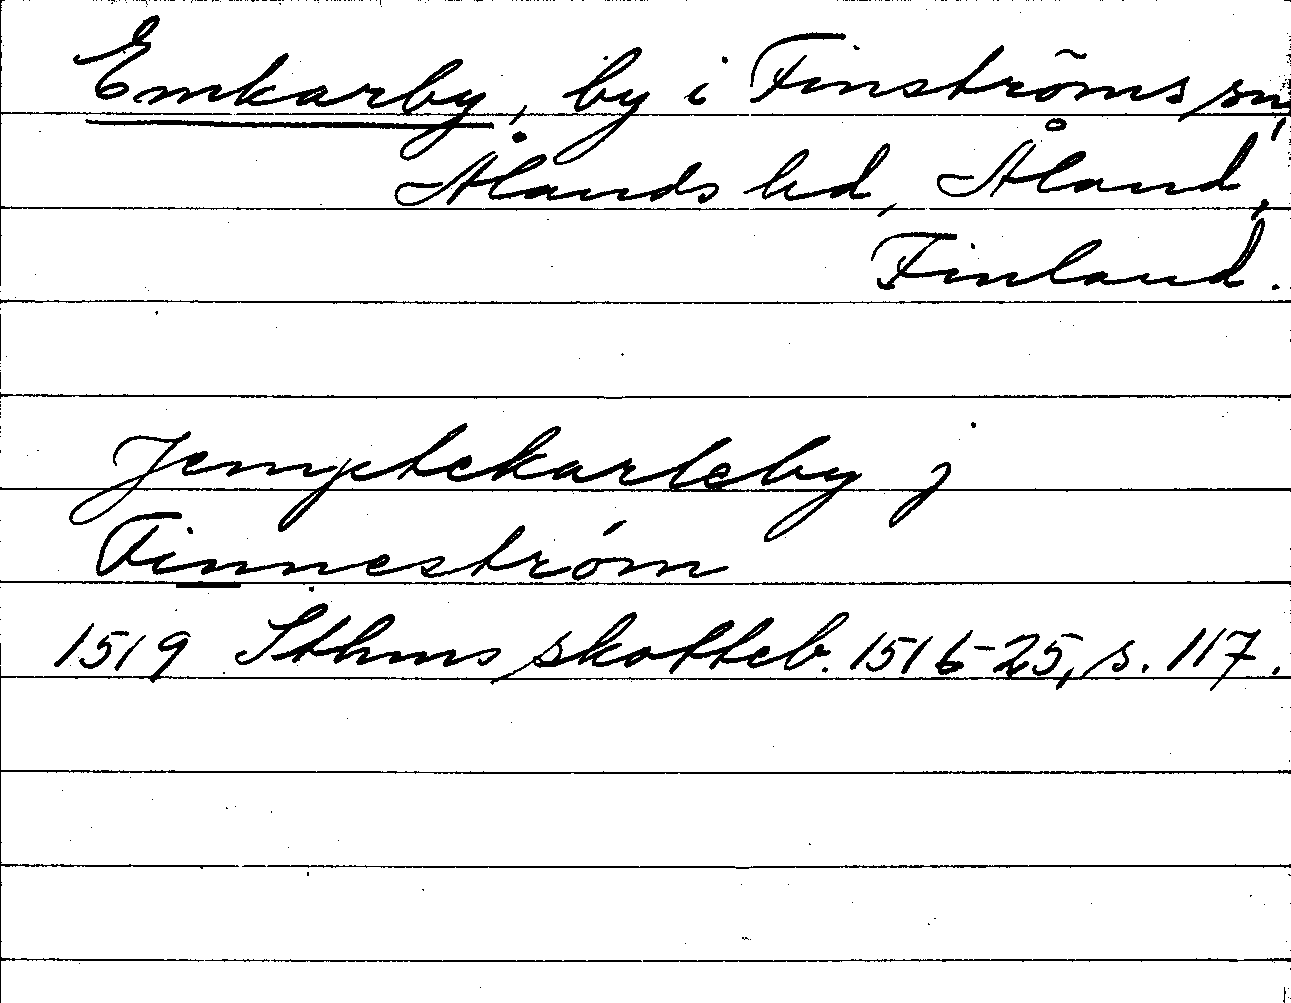 Emkarby, by i Finströms sn,
Ålands hd, Åland,
Finland.
Jemptekarleby j
Finneström
1519 Sthms skotteb. 1516-25, s. 117.